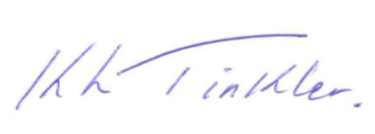 KK Tinkler.